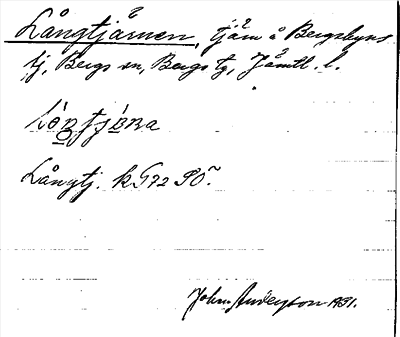 Långtjärnen, tjärn å Bergsbyns
tj, Bergs sn, Bergs tg, Jämtl. l.
Långtj. k G72 SO
John Andersson 1931.